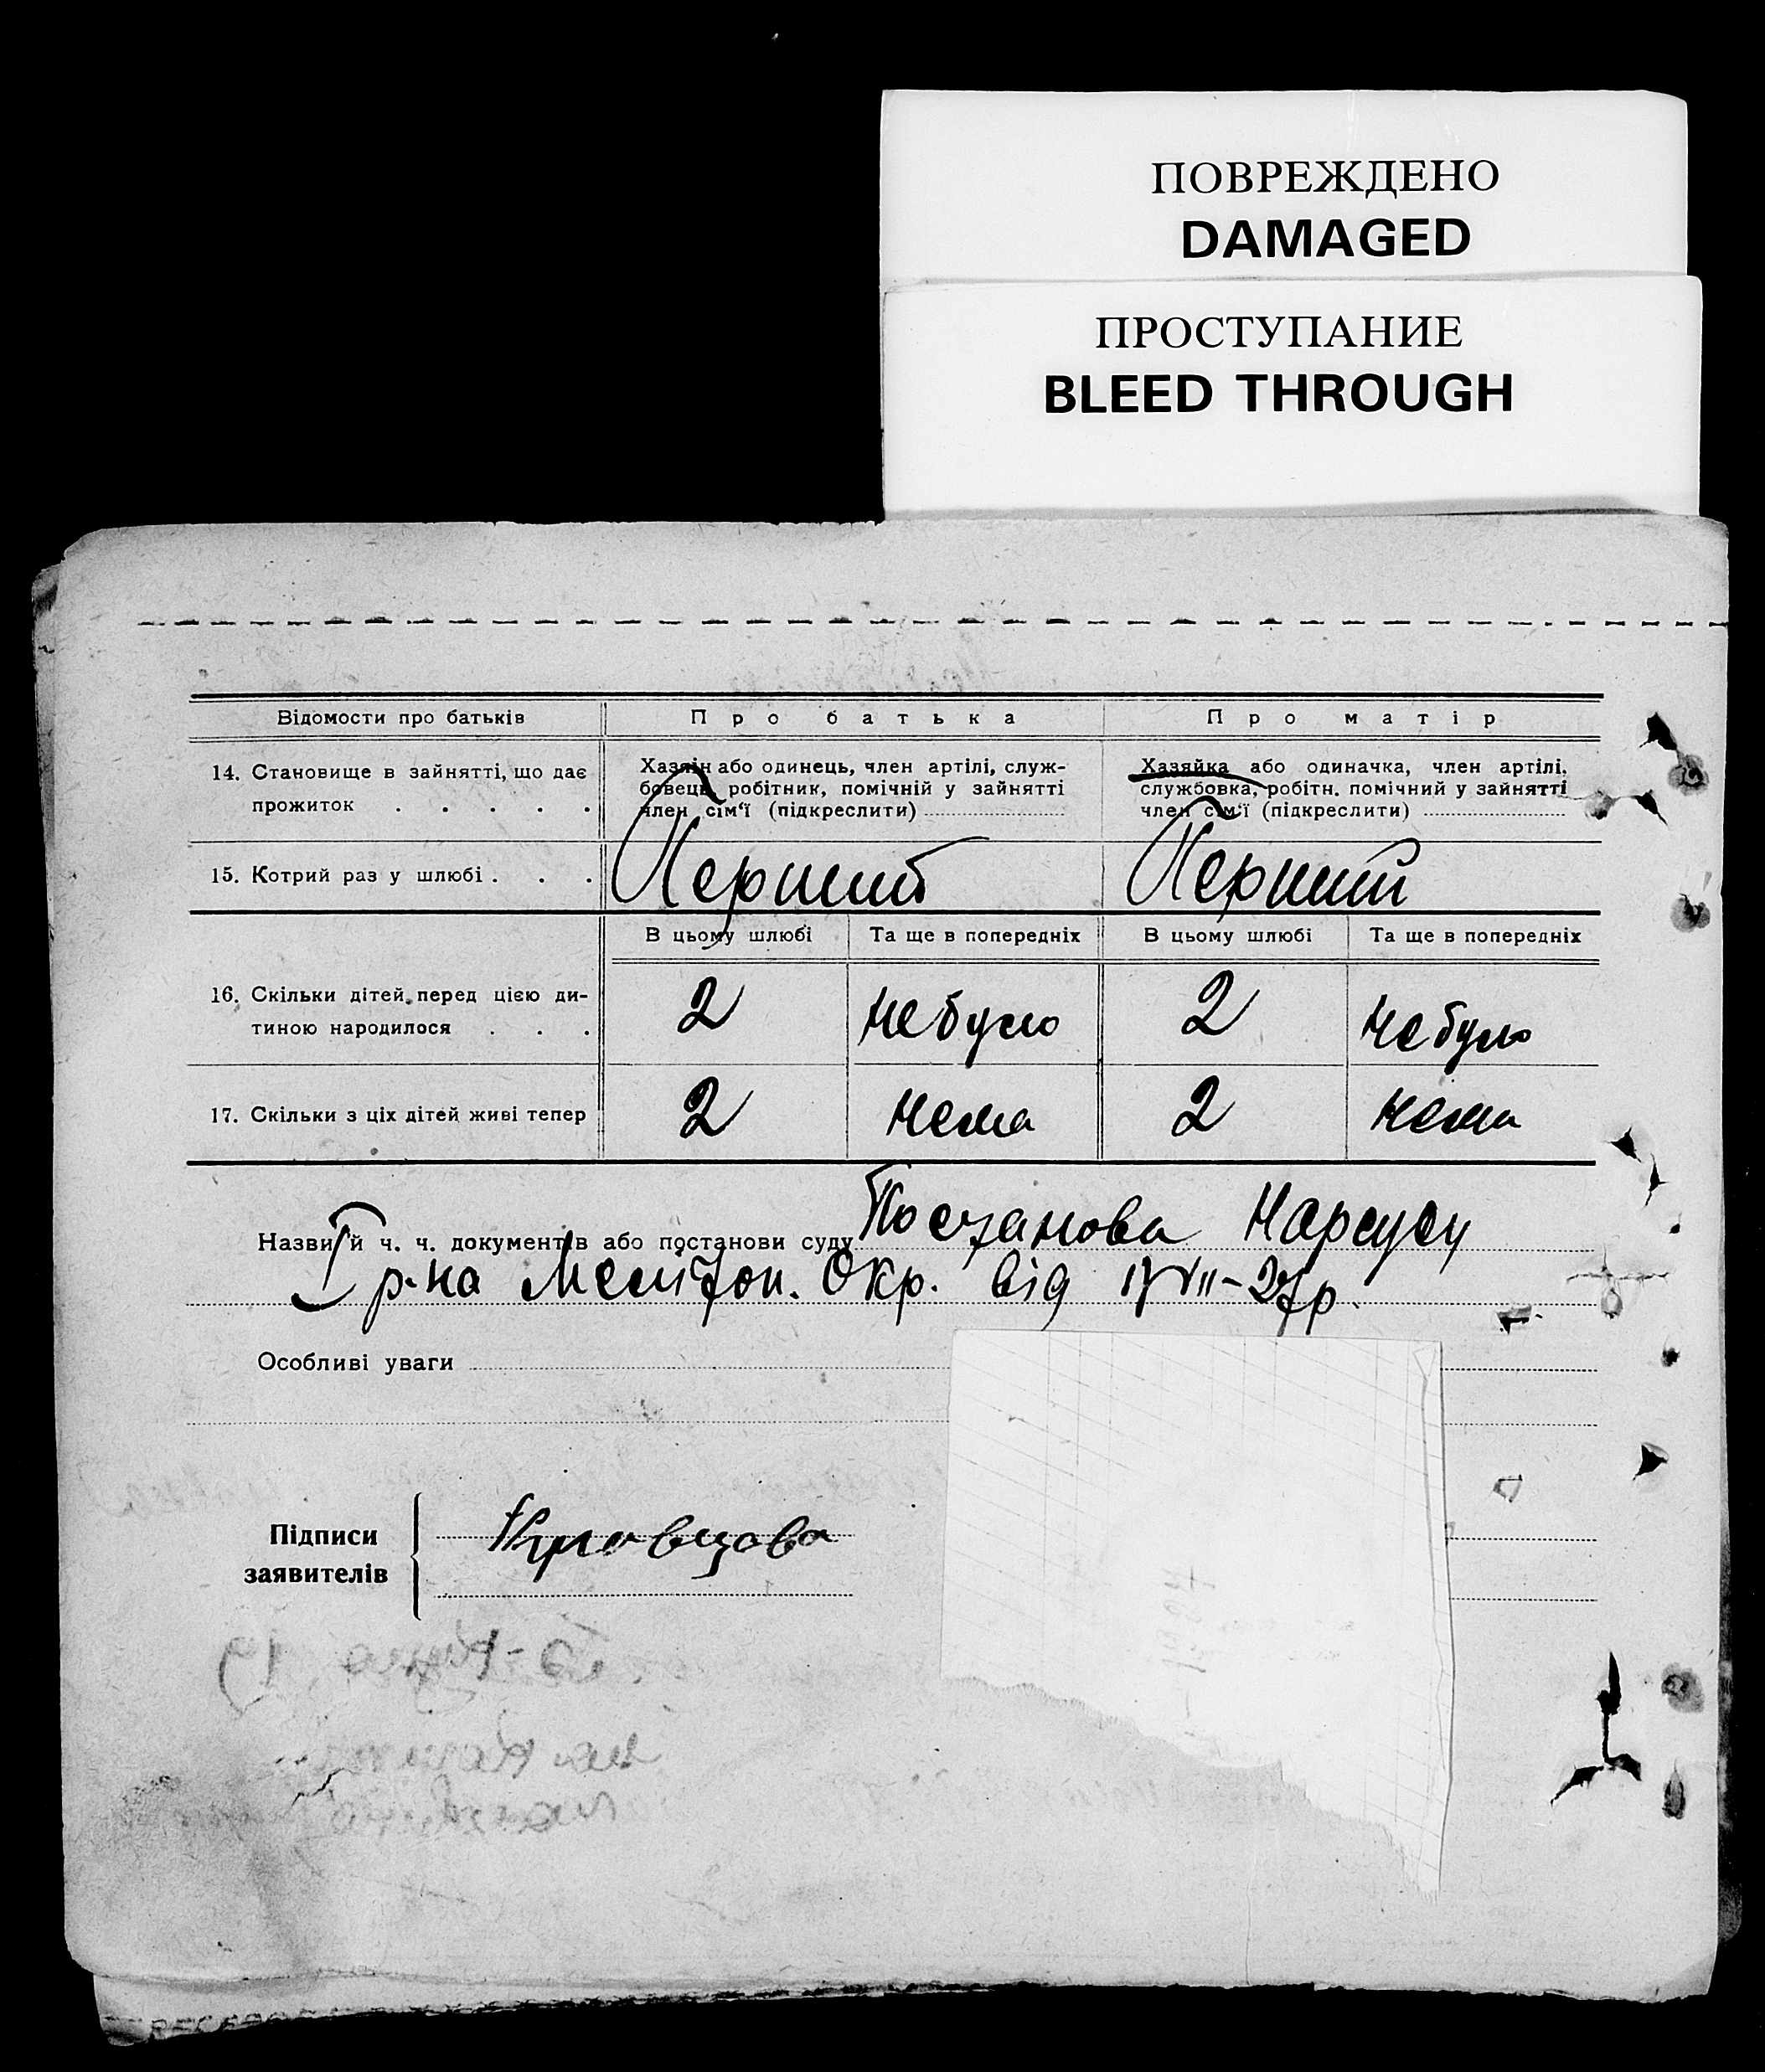 ПОВРЕЖДЕНО
DAMAGED
ПРОСТУПАНИЕ
BLEED THROUGH
Відомости про батьків
Про батька
Про матір
14. Становище в зайнятті, що дає
прожиток . . . . .
Хазяїн або одинець, член артілі, служ-
бовець, робітник, помічній у зайнятті
член сім‘ї (підкреслити)
Хазяйка або одиначка, член артілі,
службовка, робітн. помічний у зайнятті
член сім‘ї (підкреслити)
15. Котрий раз у шлюбі . . .
Перший
Перший
В цьому шлюбі
Та ще в попередніх
В цьому шлюбі
Та ще в попередніх
16. Скільки дітей перед цією ди-
тиною народилося . . .
2
небуло
2
небуло
17. Скільки з ціх дітей живі тепер
2
нема
2
нема
Назви й ч. ч. документів або постанови суду Постанова Нарсуду
р-на Меліт̄оп. Окр. від
Особливі уваги
Підписи
заявителів